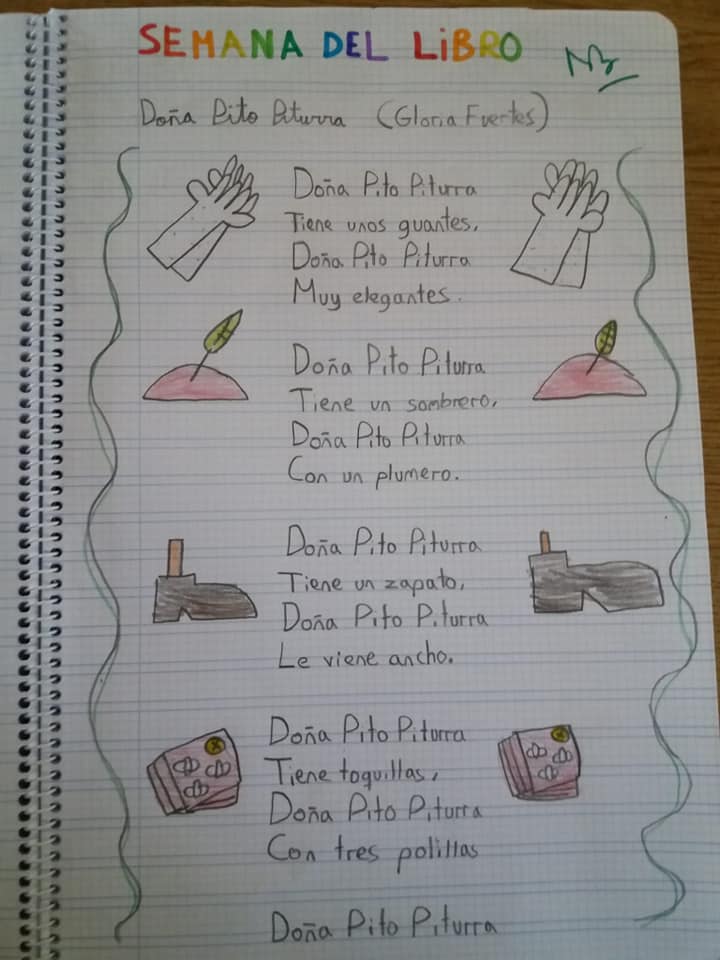 SEMANA DEL LiBRO
Doña Pito Piturra (Gloria Fuertes)
Doña Pito Piturra
Tiene unos guantes,
Doña Pito Piturra
Muy elegantes.
Doña Pito Piturra
Tiene un sombrero,
Doña Pito Piturra
Con un plumero.
Doña Pito Piturra
Tiene un zapato,
Doña Pito Piturra
Le viene ancho.
Doña Pito Piturra
Tiene toquillas,
Doña Pito Piturra
Con tres polillas
Doña Pito Piturra